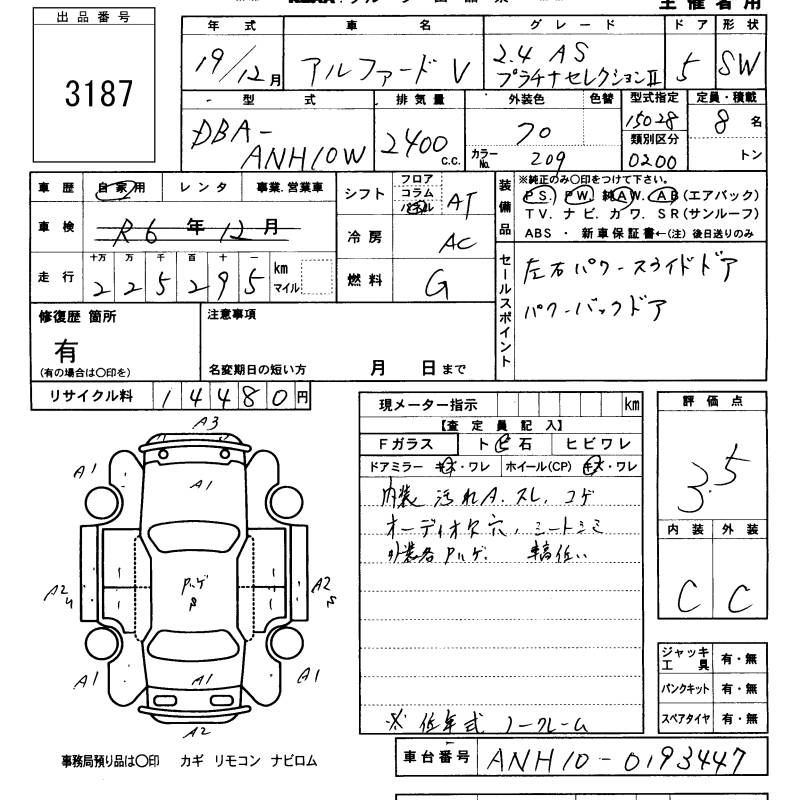 主催者用
出品番号
3187
年式 車名 グレード ドア 形状
19/12月 アルファードV 2.4 AS プラチナセレクションII 5 SW
型式 排気量 外装色 色替 型式指定 定員・積載
DBA-ANH10W 2400 c.c. 70 15028 8名
カラーNo. 209 類別区分 0200 トン
車歴 自家用 レンタ 事業.営業車
車検 R6年12月
走行 十万 万 千 百 十 一
225295 km マイル
シフト フロア コラム パネル AT
冷房 AC
燃料 G
装備品 ※純正のみ〇印をつけて下さい。
PS. PW. 純AW. AB(エアバック)
TV. ナビ. カワ. SR(サンルーフ)
ABS ・ 新車保証書←(注) 後日送りのみ
セールスポイント
左右パワースライドドア
パワーバックドア
修復歴 箇所
有
(有の場合は〇印を)
注意事項
名変期日の短い方 月 日まで
リサイクル料 14480円
現メーター指示 km
【査定員記入】
Fガラス トビ石 ヒビワレ
ドアミラー キズ・ワレ ホイール(CP) キズ・ワレ
内装 汚れA. スレ. コゲ
オーディオ欠穴, シートシミ
外装各Pハゲ.
※ 低年式 ノークレーム
評価点
3.5
内装 外装
C C
ジャッキ工具 有・無
パンクキット 有・無
スペアタイヤ 有・無
A3
A1 A1 A1
A2 A2
Pハゲ
A1 A1 A1
A2
事務局預り品は〇印 カギ リモコン ナビロム
車台番号 ANH10-0193447